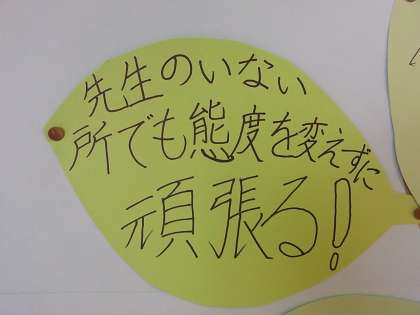 先生のいない
所でも態度を変えずに
頑張る!